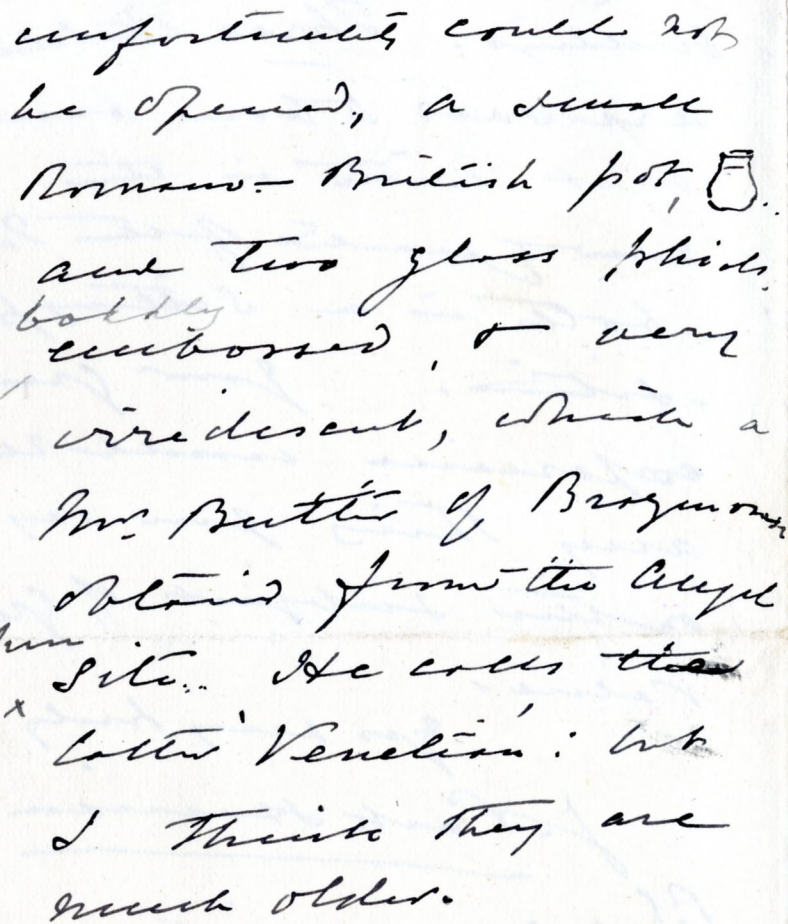 unfortunately could not
be opened, a small
Romano-British pot,
and two glass phials,
boldly
embossed, & very
irredescent, which a
Mr. Butt of
obtained from the
site. He calls the
latter 'Venetian': but
I think they are
much older.